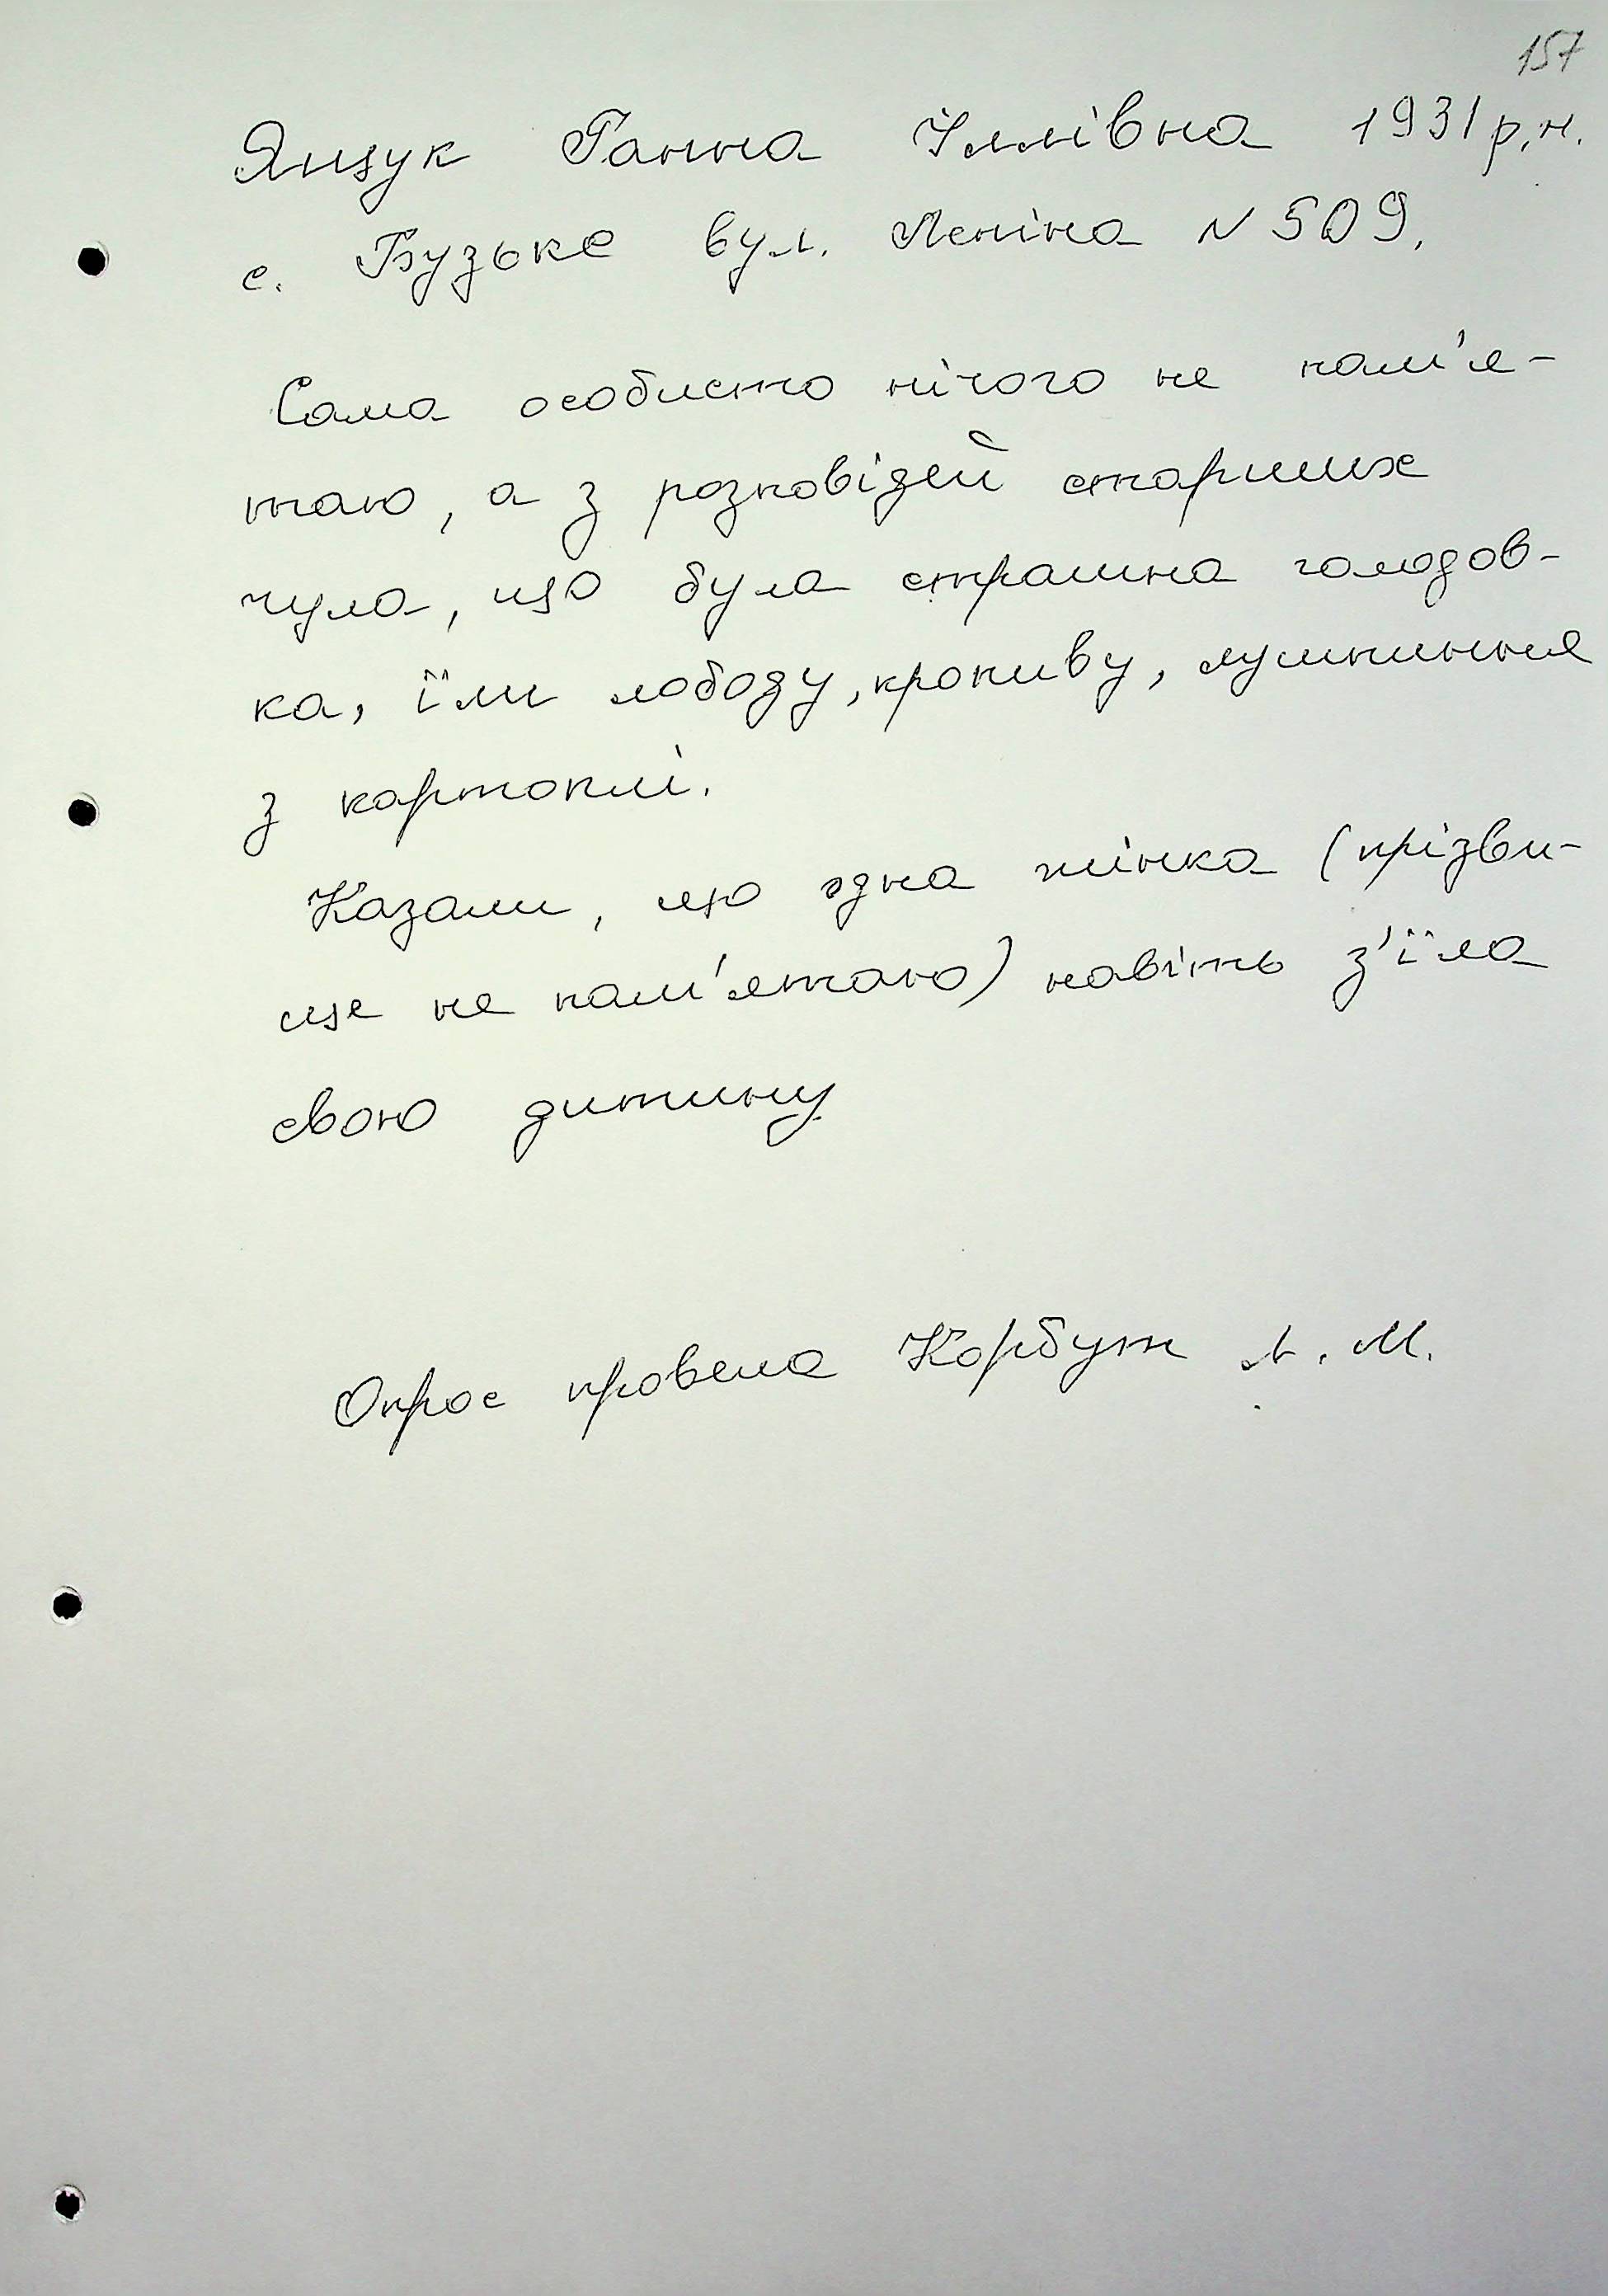 157
Ящук Ганна Іллівна 1931 р.н.
с. Бузьке вул. Леніна N 509.
Сама особисто нічого не пам'я-
таю, а з розповідей старших
чула, що була страшна голодов-
ка, їли лободу, кропиву, лушпиння
з картоплі.
Казали, що одна жінка (прізви-
ще не пам'ятаю) навіть з'їла
свою дитину
Опрос провела Корбут Л. М.